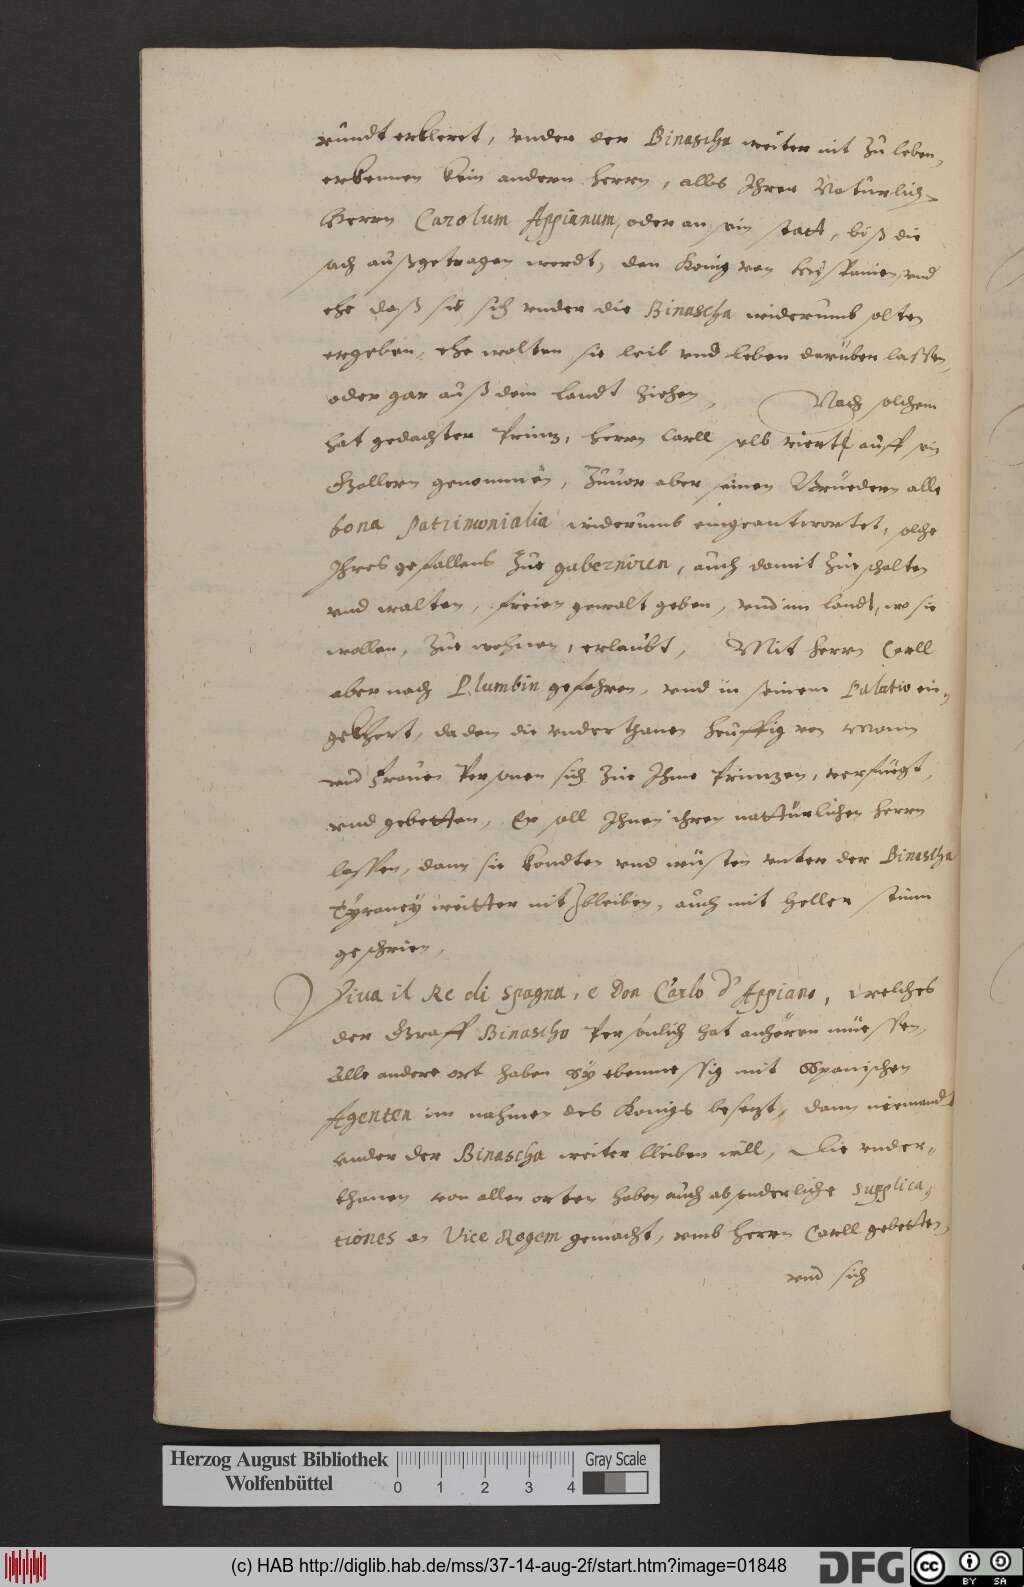 rundt erkleret, under der Binascha weiter nit zu leben,
erkennen kein andern herrn, allß Ihren Natürlich-
herrn Carolum Appianum, oder an sein statt, biß die
sach außgetragen werdt, den König von hyspanien, und
ehe daß sie sich under die Binascha widerumb solten
ergeben, ehe wolten sie leib und leben darüber lassen,
oder gar auß dem landt ziehen, Nach solchem
hat gedachter Prinz, herrn Carll selb viert auff ein
Gallern genommen, Zuuor aber seinen Brüedern alle
bona patrimonialia widerumb eingeantwortet, solche
Ihres gefallens Zue guberniren, auch damit Zue schalten
und walten, freien gewalt geben, und im landt, wo sie
wollen, Zue wohnen, erlaubt, Mit herrn Carll
aber nach Plumbin gefahren, und in seinem Palatio ein-
gekhert, da dem die underthanen heuffig von Mann
und frauen Personen sich Zue Ihme Prinzen, verfüegt,
und gebetten, Er soll Ihnen ihren nattürlichen herrn
lassen, dann sie kondten und wüsten unter der Binascha
Tÿraneÿ weitter nit bleiben, auch mit heller stimm
geschrien,
Viua il Re di Spagna, e Don Carlo d'Appiano, welches
der Graff Binascho Persönlich hat anhören müessen,
Alle andere ort haben sÿ ebenmessig mit Spanischen
Agenten im nahmen des Königs besezt, dann niemandt
under der Binascha weiter bleiben will, Die under-
thanen von allen orten haben auch absonderliche supplica-
tiones an Vice Regem gemacht, umb herrn Carll gebetten,
und sich
Herzog August Bibliothek
Wolfenbüttel
0 1 2 3 4
Gray Scale
(c) HAB http://diglib.hab.de/mss/37-14-aug-2f/start.htm?image=01848
DFG
cc
BY SA